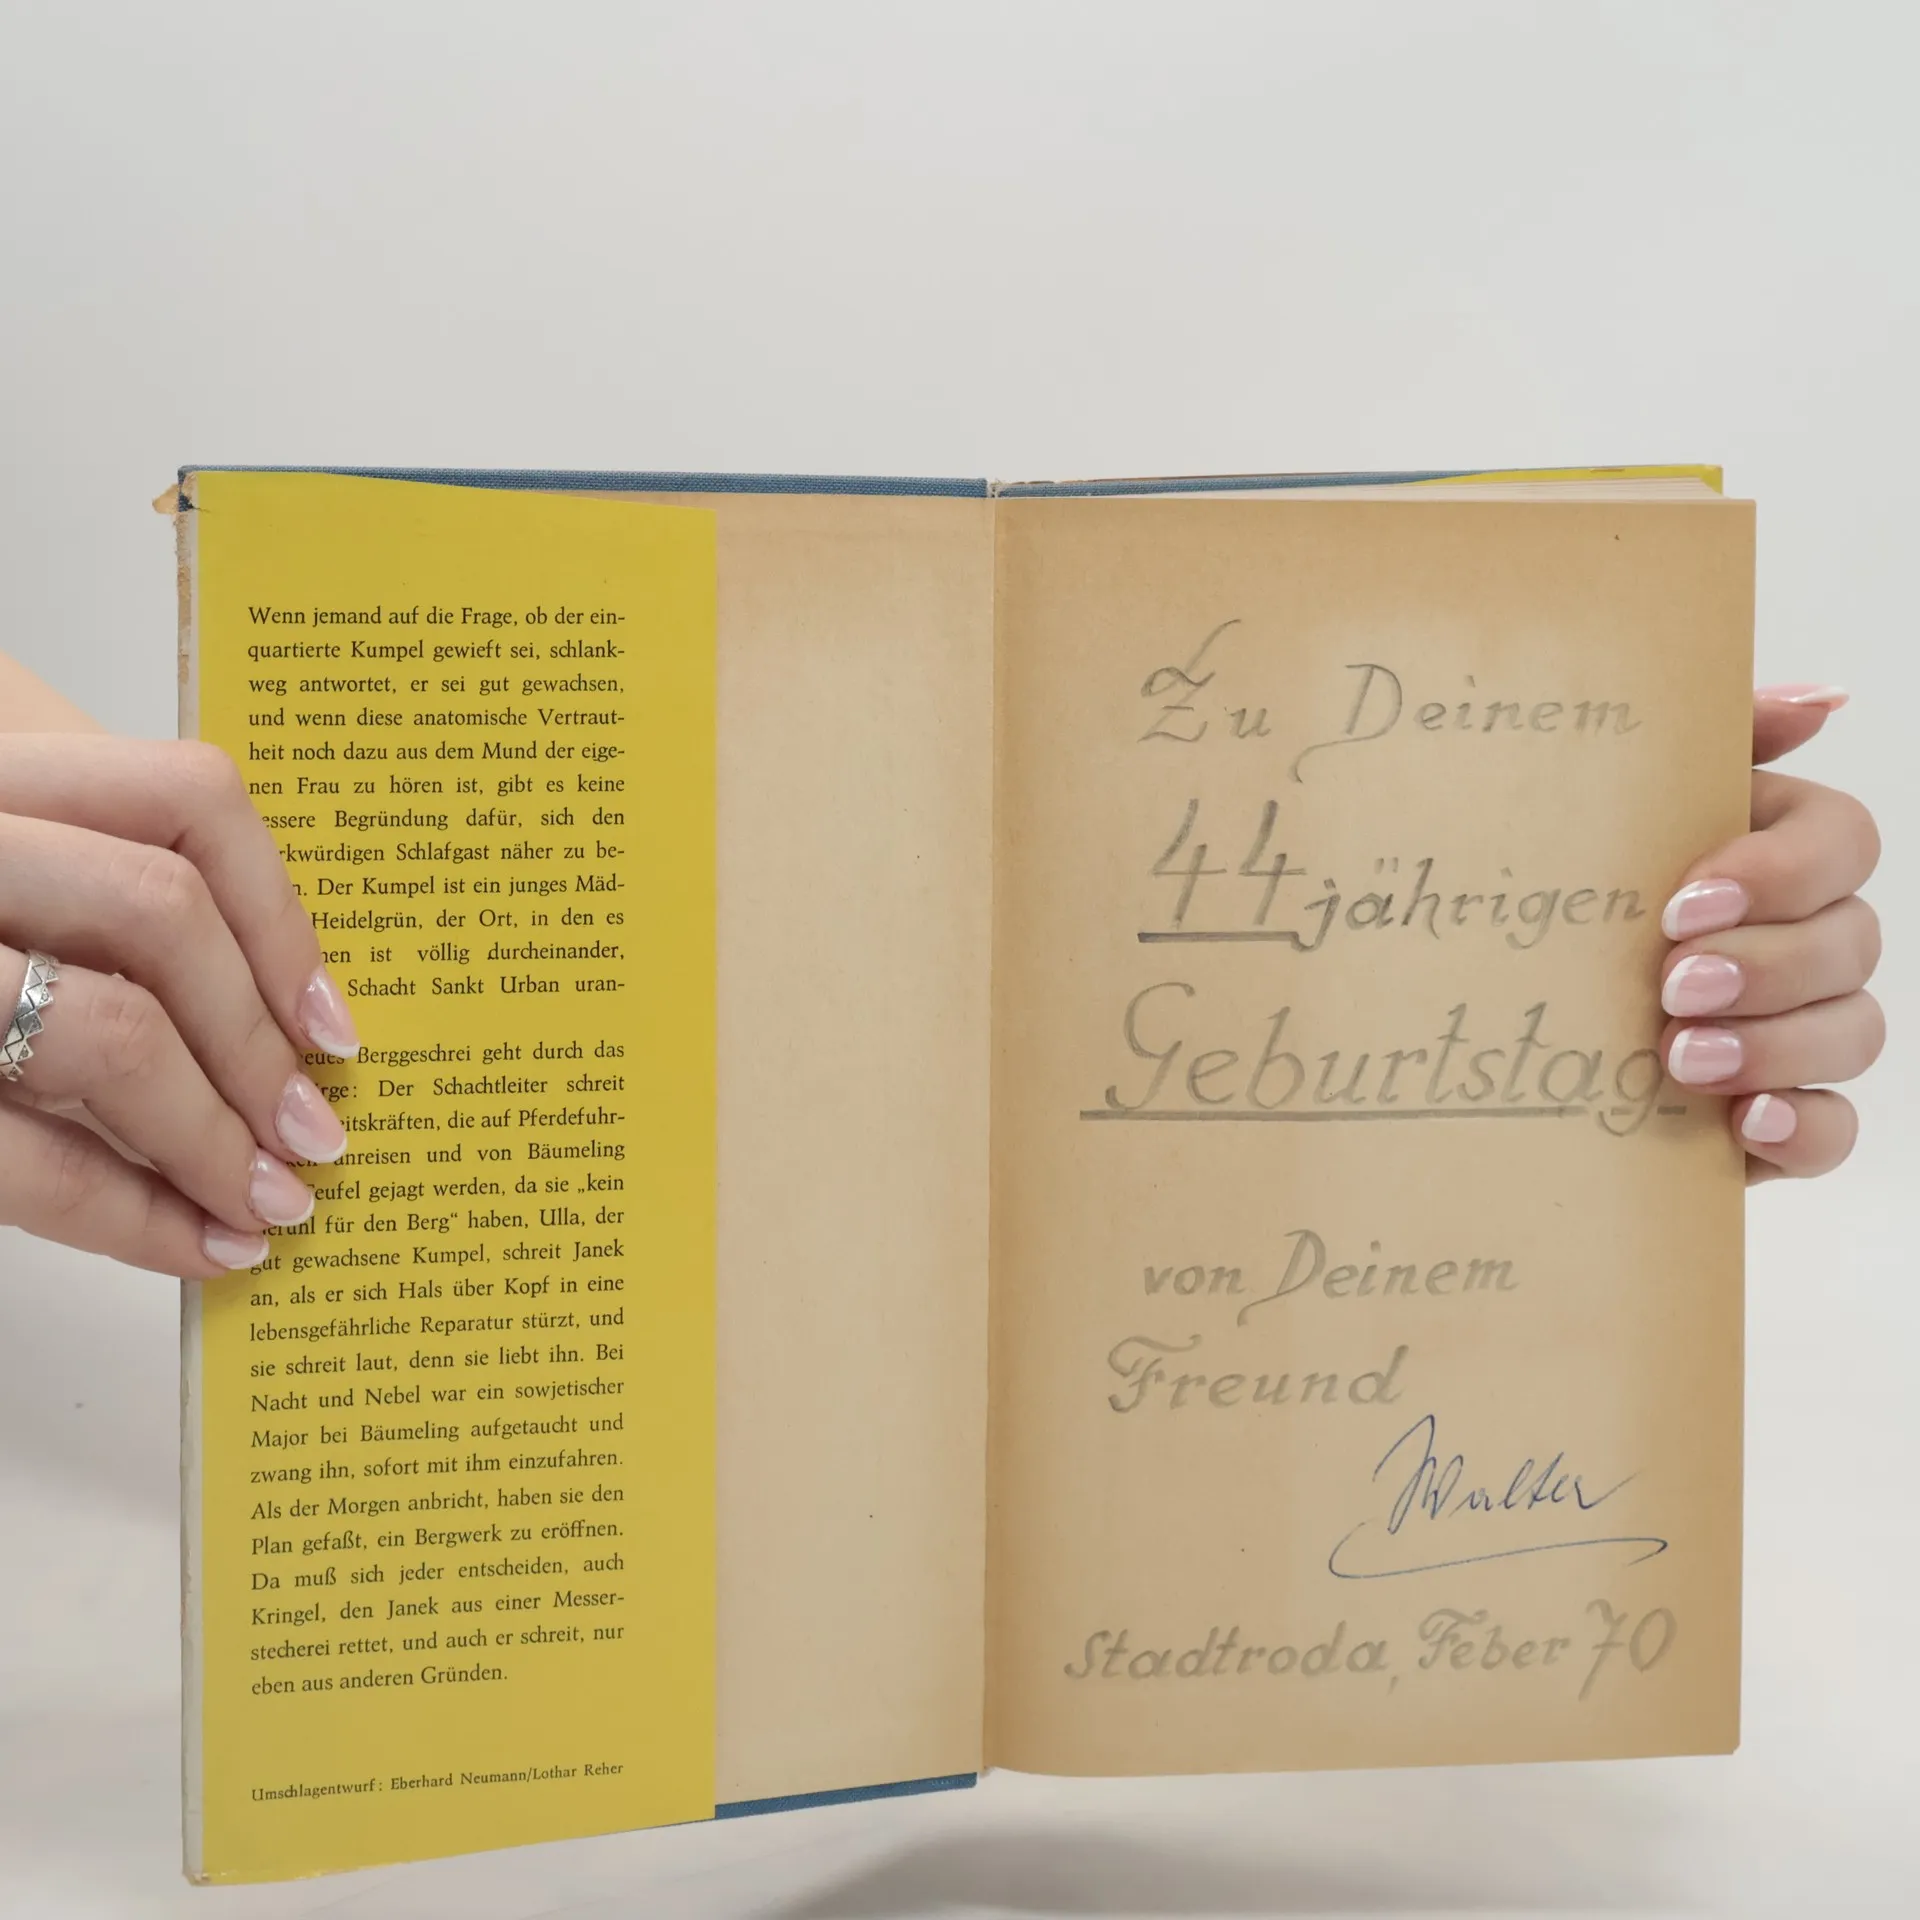 Wenn jemand auf die Frage, ob der ein-
quartierte Kumpel gewieft sei, schlank-
weg antwortet, er sei gut gewachsen,
und wenn diese anatomische Vertraut-
heit noch dazu aus dem Mund der eige-
nen Frau zu hören ist, gibt es keine
essere Begründung dafür, sich den
rkwürdigen Schlafgast näher zu be-
n. Der Kumpel ist ein junges Mäd-
Heidelgrün, der Ort, in den es
ist völlig durcheinander,
Schacht Sankt Urban uran-
eues Berggeschrei geht durch das
rge: Der Schachtleiter schreit
eitskräften, die auf Pferdefuhr-
anreisen und von Bäumeling
eufel gejagt werden, da sie „kein
für den Berg“ haben, Ulla, der
gut gewachsene Kumpel, schreit Janek
an, als er sich Hals über Kopf in eine
lebensgefährliche Reparatur stürzt, und
sie schreit laut, denn sie liebt ihn. Bei
Nacht und Nebel war ein sowjetischer
Major bei Bäumeling aufgetaucht und
zwang ihn, sofort mit ihm einzufahren.
Als der Morgen anbricht, haben sie den
Plan gefaßt, ein Bergwerk zu eröffnen.
Da muß sich jeder entscheiden, auch
Kringel, den Janek aus einer Messer-
stecherei rettet, und auch er schreit, nur
eben aus anderen Gründen.
Umschlagentwurf: Eberhard Neumann/Lothar Reher
Zu Deinem
44jährigen
Geburtstag
von Deinem
Freund
Walter
Stadtroda, Feber 70